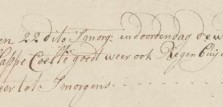 en 22 dito Smorg: en doordendag de w
slappe Coelte goedt weer ook Regen buij
eer tot Smorgens.